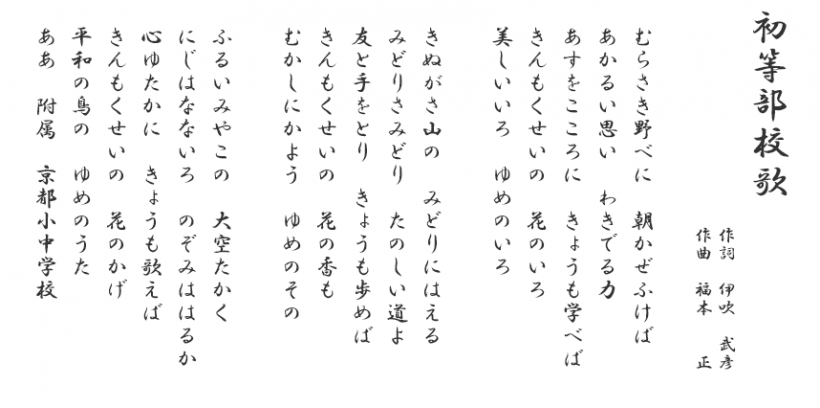 初等部校歌
作詞 伊吹 武彦
作曲 福本 正
むらさき野べに 朝かぜふけば
あかるい思い わきでる力
あすをこころに きょうも学べば
きんもくせいの 花のいろ
美しいいろ ゆめのいろ
きぬがさ山の みどりにはえる
みどりさみどり たのしい道よ
友と手をとり きょうも歩めば
きんもくせいの 花の香も
むかしにかよう ゆめのその
ふるいみやこの 大空たかく
にじはなないろ のぞみははるか
心ゆたかに きょうも歌えば
きんもくせいの 花のかげ
平和の鳥の ゆめのうた
ああ 附属 京都小中学校